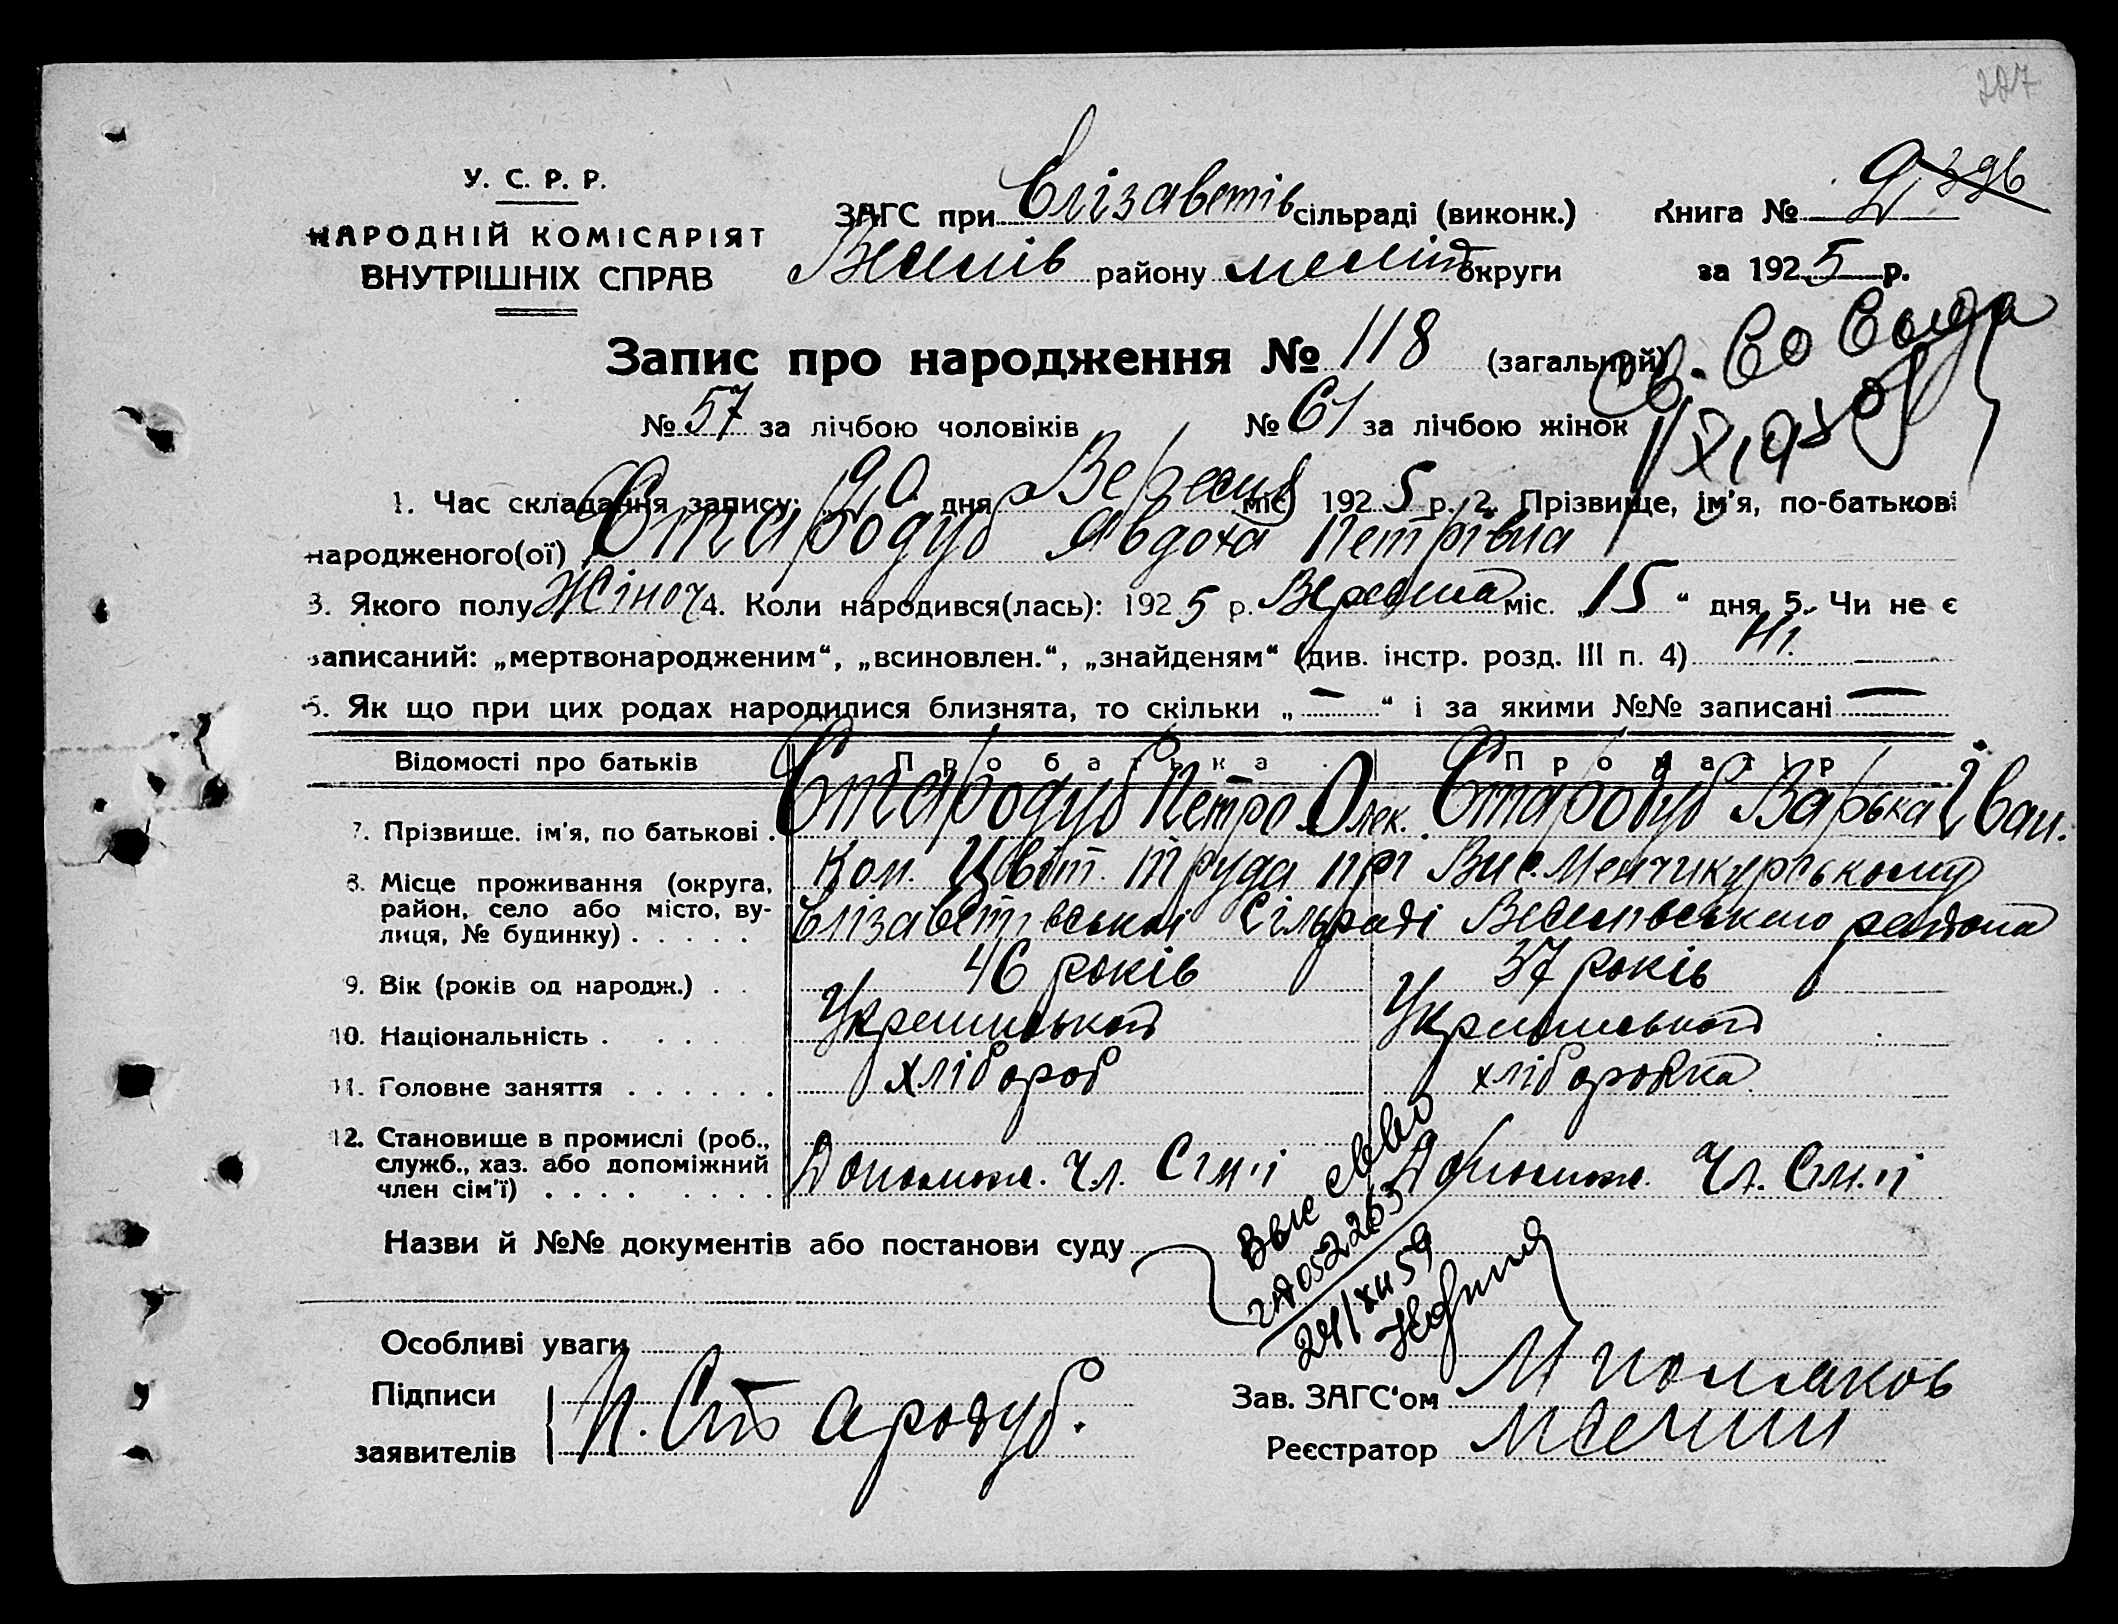 227
У. С. Р. Р.
НАРОДНІЙ КОМІСАРІЯТ
ВНУТРІШНІХ СПРАВ
ЗАГС при Єлізаветів сільраді (виконк.)
Книга № 2 396
Веселів району меліт округи
за 1925 р.
Запис про народження № 118 (загальний)
№ 57 за лічбою чоловіків № 61 за лічбою жінок
1. Час складання запису: „20 дня Вересня міс. 1925 р. 2. Прізвище, ім'я, по-батькові
народженого(ої) Стародуб Явдоха Петрівна
3. Якого полу Жіноч 4. Коли народився(лась): 1925 р. Вересня міс. „15“ дня 5. Чи не є
записаний: „мертвонародженим“, „всиновлен.“, „знайденям“ (див. інстр. розд. III п. 4) Ні.
6. Як що при цих родах народилися близнята, то скільки „—“ і за якими №№ записані —
Відомості про батьків Про батька Про матір
7. Прізвище, ім'я, по батькові . Стародуб Петро Олек. Стародуб Варька Іван.
8. Місце проживання (округа, район, село або місто, вулиця, № будинку) . . . . . Ком. Цвіт. труда прі Вис. Менчикурському
Єлізаветівській Сільраді Веселівського района
9. Вік (років од народж.) . . 46 років 37 років
10. Національність . . . . Українській Українській
11. Головне заняття . . . . . . хлібороб хліборобка
12. Становище в промислі (роб., служб., хаз. або допоміжний член сім'ї) . . . . . . . . Допоміж. Чл. Сім'ї Допоміж. Чл. Сім.'ї
Назви й №№ документів або постанови суду
24/XII 59
Особливі уваги
Підписи
заявителів
П. Стародуб.
Зав. ЗАГС'ом
Реєстратор